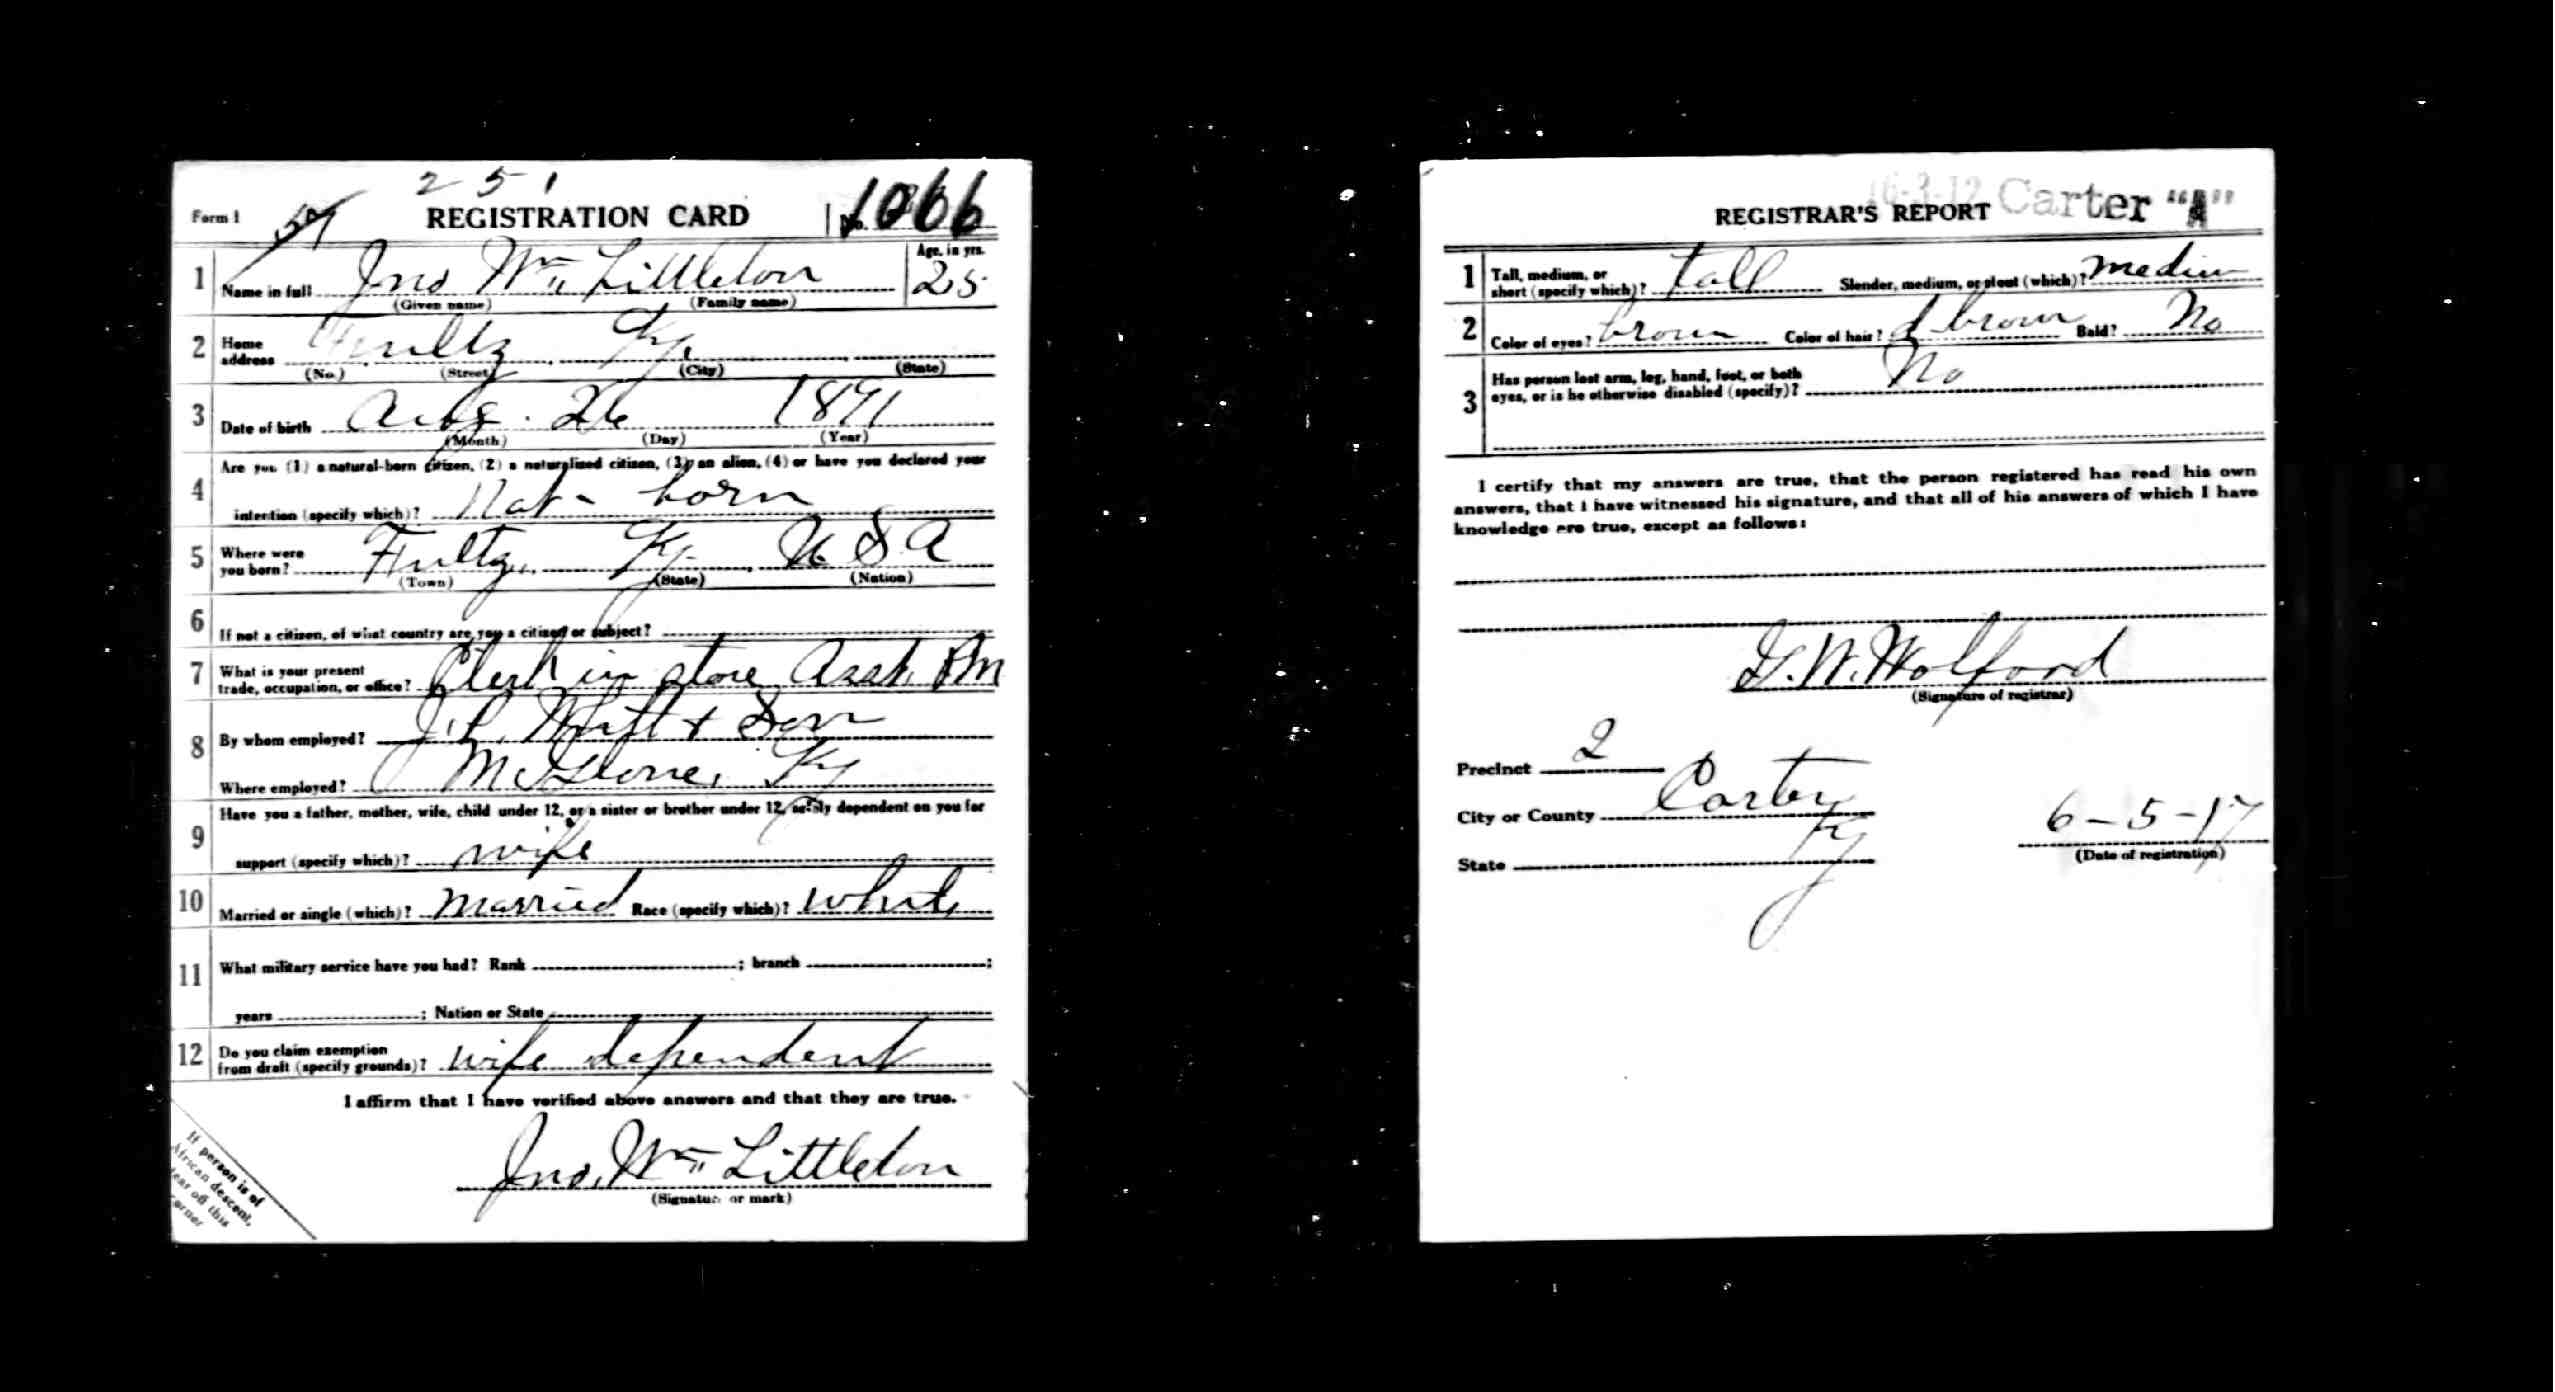 251
Form 1 REGISTRATION CARD No. 1066
1 Name in full Jno Wm Littleton Age, in yrs. 25
(Given name) (Family name)
2 Home address Fultz Ky.
(No.) (Street) (City) (State)
3 Date of birth Aug. 26 1891
(Month) (Day) (Year)
4 Are you (1) a natural-born citizen, (2) a naturalized citizen, (3) an alien, (4) or have you declared your
intention (specify which)? Nat- born
5 Where were you born? Fultz, Ky. U S A
(Town) (State) (Nation)
6 If not a citizen, of what country are you a citizen or subject?
7 What is your present trade, occupation, or office? Clerk in store Asst. PM
8 By whom employed? J. L. & Son
Where employed? McGlone, Ky
9 Have you a father, mother, wife, child under 12, or a sister or brother under 12, solely dependent on you for
support (specify which)? wife
10 Married or single (which)? married Race (specify which)? white
11 What military service have you had? Rank ; branch ;
years ; Nation or State
12 Do you claim exemption from draft (specify grounds)? wife dependent
I affirm that I have verified above answers and that they are true.
Jno. Wm Littleton
(Signature or mark)
If person is of
African descent,
tear off this
corner
16-3-12 Carter "A"
REGISTRAR'S REPORT
1 Tall, medium, or short (specify which)? tall Slender, medium, or stout (which)? medium
2 Color of eyes? brown Color of hair? d brown Bald? No
3 Has person lost arm, leg, hand, foot, or both eyes, or is he otherwise disabled (specify)? No
I certify that my answers are true, that the person registered has read his own
answers, that I have witnessed his signature, and that all of his answers of which I have
knowledge are true, except as follows:
G. W. Wolford
(Signature of registrar)
Precinct 2
City or County Carter
State Ky
6-5-17
(Date of registration)